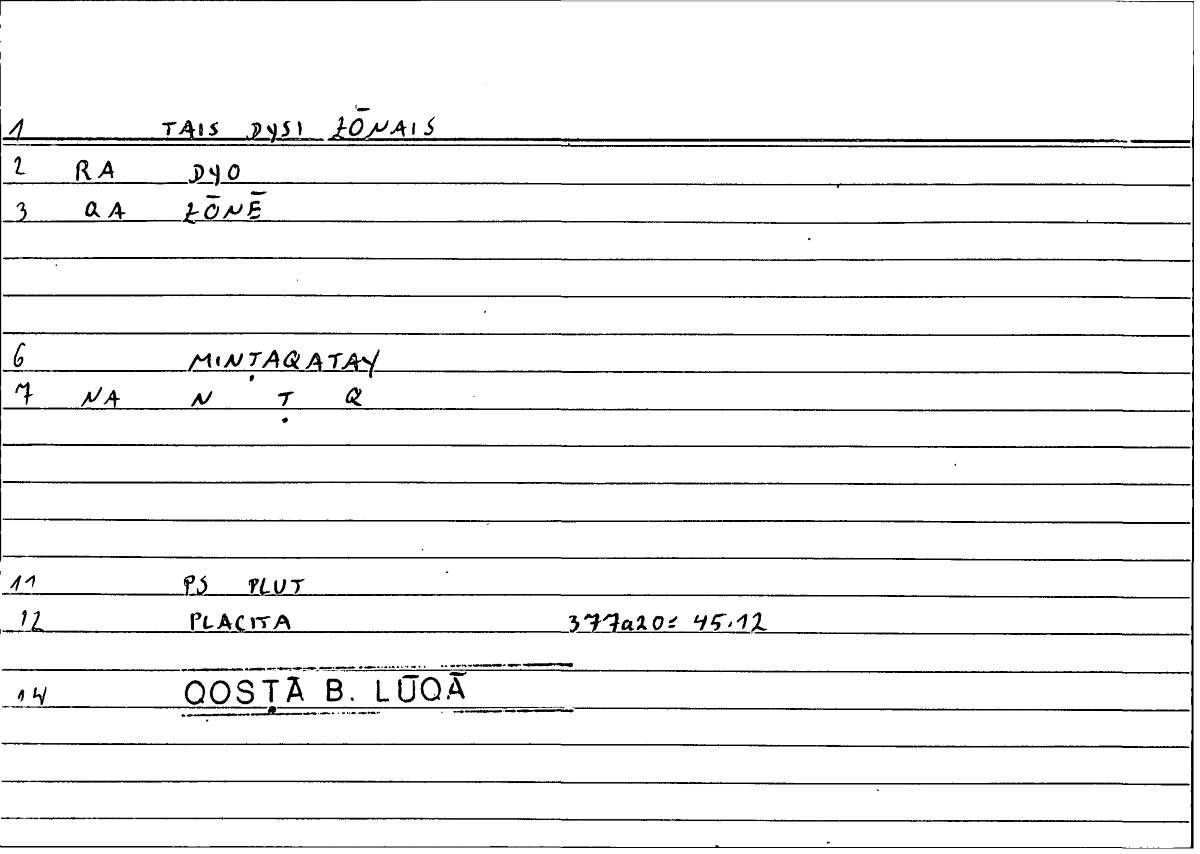 1 TAIS DYSI ZŌNAIS
2 RA DYO
3 QA ZŌNĒ
6 MINṬAQATAY
7 NA N Ṭ Q
11 PS PLUT
12 PLACITA 377a20= 45.12
14 QOSṬĀ B. LŪQĀ